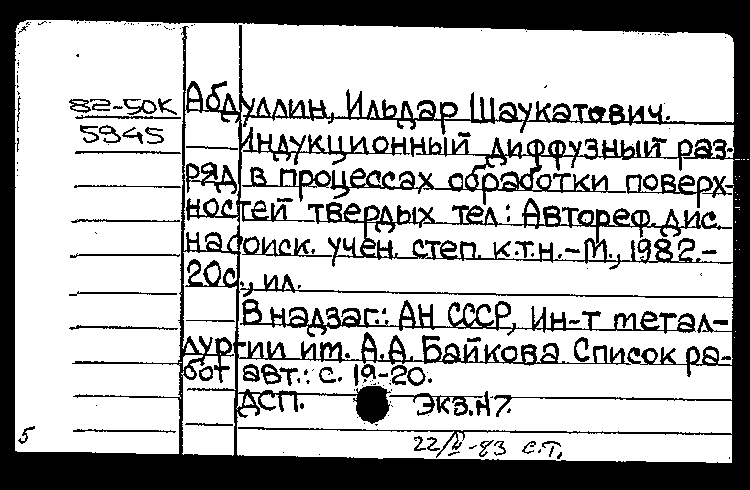 82-50К
5945
Абдуллин, Ильдар Шаукатович.
Индукционный диффузный раз-
ряд в процессах обработки поверх-
ностей твердых тел: Автореф. дис.
на соиск. учен. степ. к.т.н. - М., 1982.-
20с., ил.
В надзаг.: АН СССР, Ин-т метал-
лургии им. А.А. Байкова. Список ра-
бот авт.: с. 19-20.
ДСП. Экз.N7.
5
22/IV-83 С.Т.